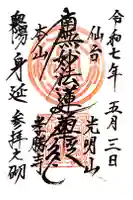 令和七年
五月三日
仙台
光明山
南無妙法蓮華経
本山
孝勝寺
身延
参拝之砌